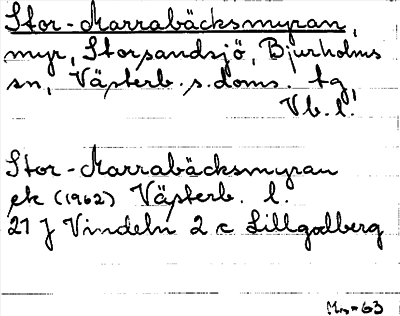 Stor-Marrabäcksmyran,
myr, Storsandsjö, Bjurholms
sn, Västerb. s. doms. tg,
Vb. l.
Stor-Marrabäcksmyran
ek (1962) Västerb. l.
21 J Vindeln 2 c Lillgodberg
63